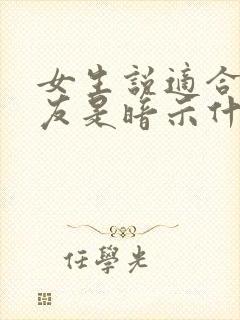 女生說適合
友是暗示什
任學光